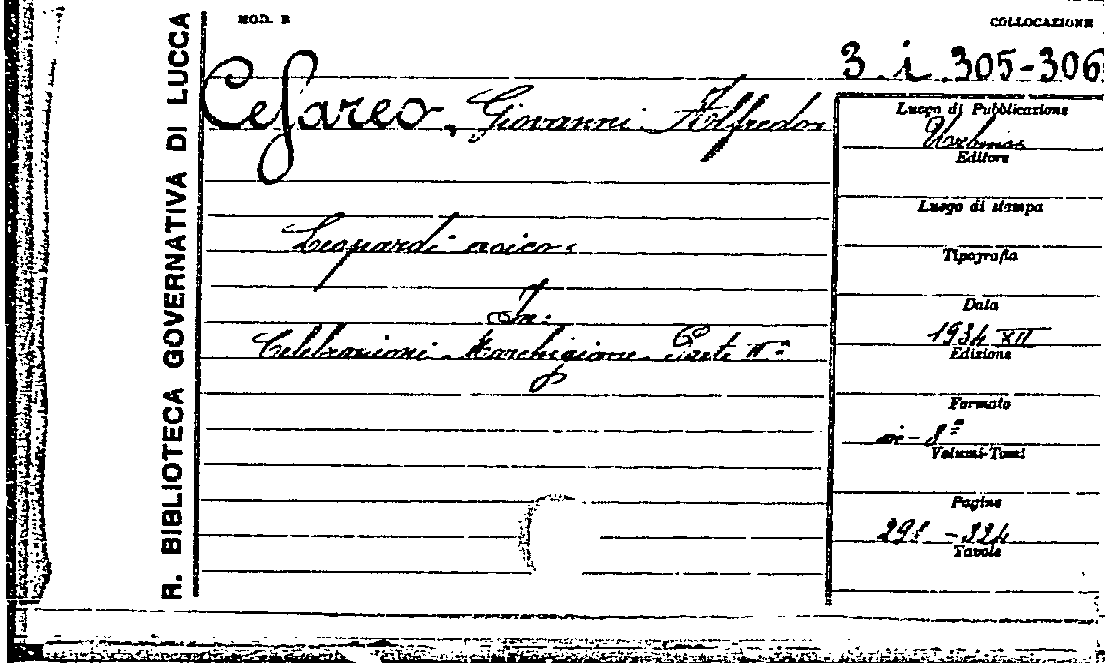 R. BIBLIOTECA GOVERNATIVA DI LUCCA
MOD. B
COLLOCAZIONE
3. i. 305-306
Cesareo, Giovanni Alfredo
Luogo di Pubblicazione
Urbino
Editore
Luogo di stampa
Leopardi
Tipografia
Data
In:
1934 XII
Edizione
Celebrazioni Marchigiane. Parte
Formato
8º
Volumi-Tomi
Pagine
-324
Tavole